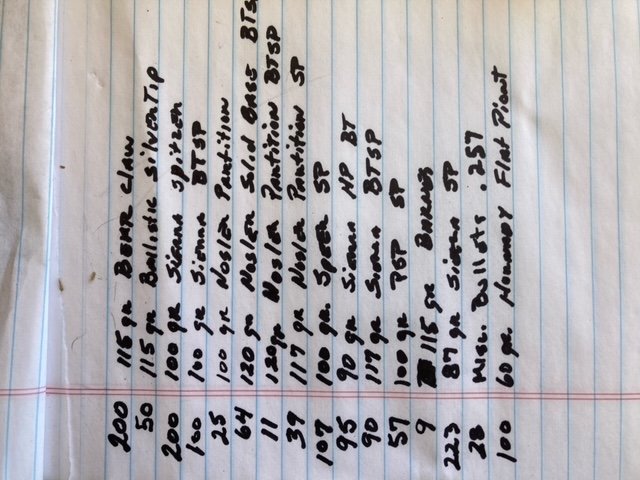 200 115 gr BEAR CLAW
50 115 gr Ballistic SilverTip
200 100 gr Sierra Spitzer
100 100 gr Sierra BTSP
25 100 gr Nosler Partition
64 120 gr Nosler Solid Base BTS
11 120gr Nosler Partition BTSP
39 117 gr Nosler Partition SP
107 100 gr. Speer SP
95 90 gr Sierra HP BT
90 117 gr Sierra BTSP
57 100 gr PSP SP
9 115 gr Barnes
223 87 gr Sierra SP
28 Misc. Bullets .257
100 60 gr. Hornady Flat Piont